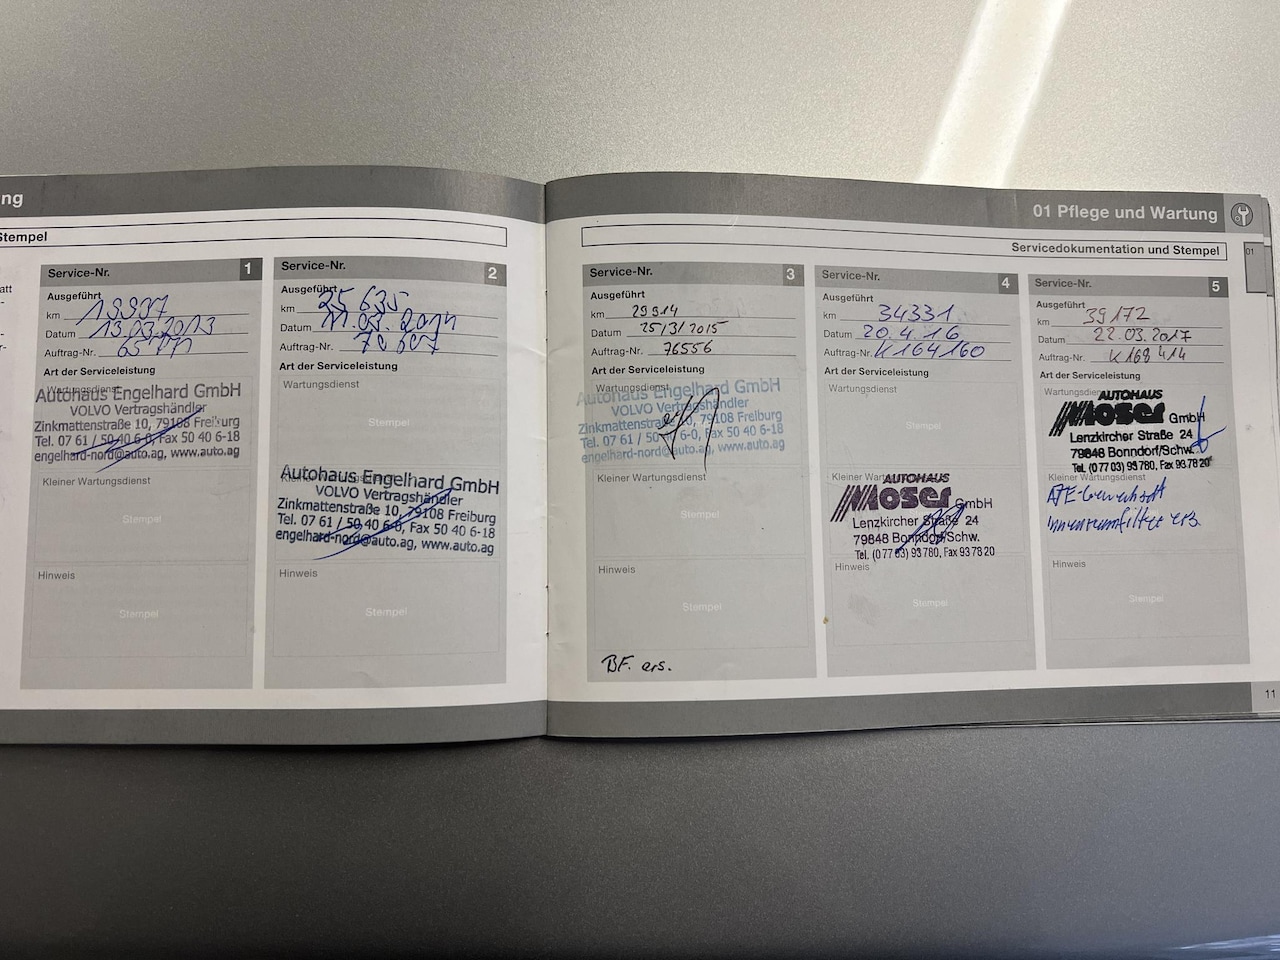 ng
Stempel
Service-Nr. 1
Ausgeführt
km
Datum 13.03.2013
Auftrag-Nr.
Art der Serviceleistung
Wartungsdienst
Autohaus Engelhard GmbH
VOLVO Vertragshändler
Zinkmattenstraße 10, 79108 Freiburg
Tel. 07 61 / 50 40 6-0, Fax 50 40 6-18
engelhard-nord@auto.ag, www.auto.ag
Kleiner Wartungsdienst
Stempel
Hinweis
Stempel
Service-Nr. 2
Ausgeführt
km 25 635
Datum 11.03.2014
Auftrag-Nr.
Art der Serviceleistung
Wartungsdienst
Stempel
Kleiner Wartungsdienst
Autohaus Engelhard GmbH
VOLVO Vertragshändler
Zinkmattenstraße 10, 79108 Freiburg
Tel. 07 61 / 50 40 6-0, Fax 50 40 6-18
engelhard-nord@auto.ag, www.auto.ag
Hinweis
Stempel
01 Pflege und Wartung
Servicedokumentation und Stempel
01
Service-Nr. 3
Ausgeführt
km 29914
Datum 25/3/2015
Auftrag-Nr. 76556
Art der Serviceleistung
Wartungsdienst
Autohaus Engelhard GmbH
VOLVO Vertragshändler
Zinkmattenstraße 10, 79108 Freiburg
Tel. 07 61 / 50 40 6-0, Fax 50 40 6-18
engelhard-nord@auto.ag, www.auto.ag
Kleiner Wartungsdienst
Stempel
Hinweis
Stempel
BF. ers.
Service-Nr. 4
Ausgeführt
km 34331
Datum 20.4.16
Auftrag-Nr. K164160
Art der Serviceleistung
Wartungsdienst
Stempel
Kleiner Wartungsdienst
AUTOHAUS
Moser GmbH
Lenzkircher Straße 24
79848 Bonndorf/Schw.
Tel. (0 77 03) 93 780, Fax 93 78 20
Hinweis
Stempel
Service-Nr. 5
Ausgeführt
km 39172
Datum 22.03.2017
Auftrag-Nr. K168414
Art der Serviceleistung
Wartungsdienst
AUTOHAUS
Moser GmbH
Lenzkircher Straße 24
79848 Bonndorf/Schw.
Tel. (0 77 03) 93 780, Fax 93 78 20
Kleiner Wartungsdienst
Innenraumfilter ers.
Hinweis
Stempel
11